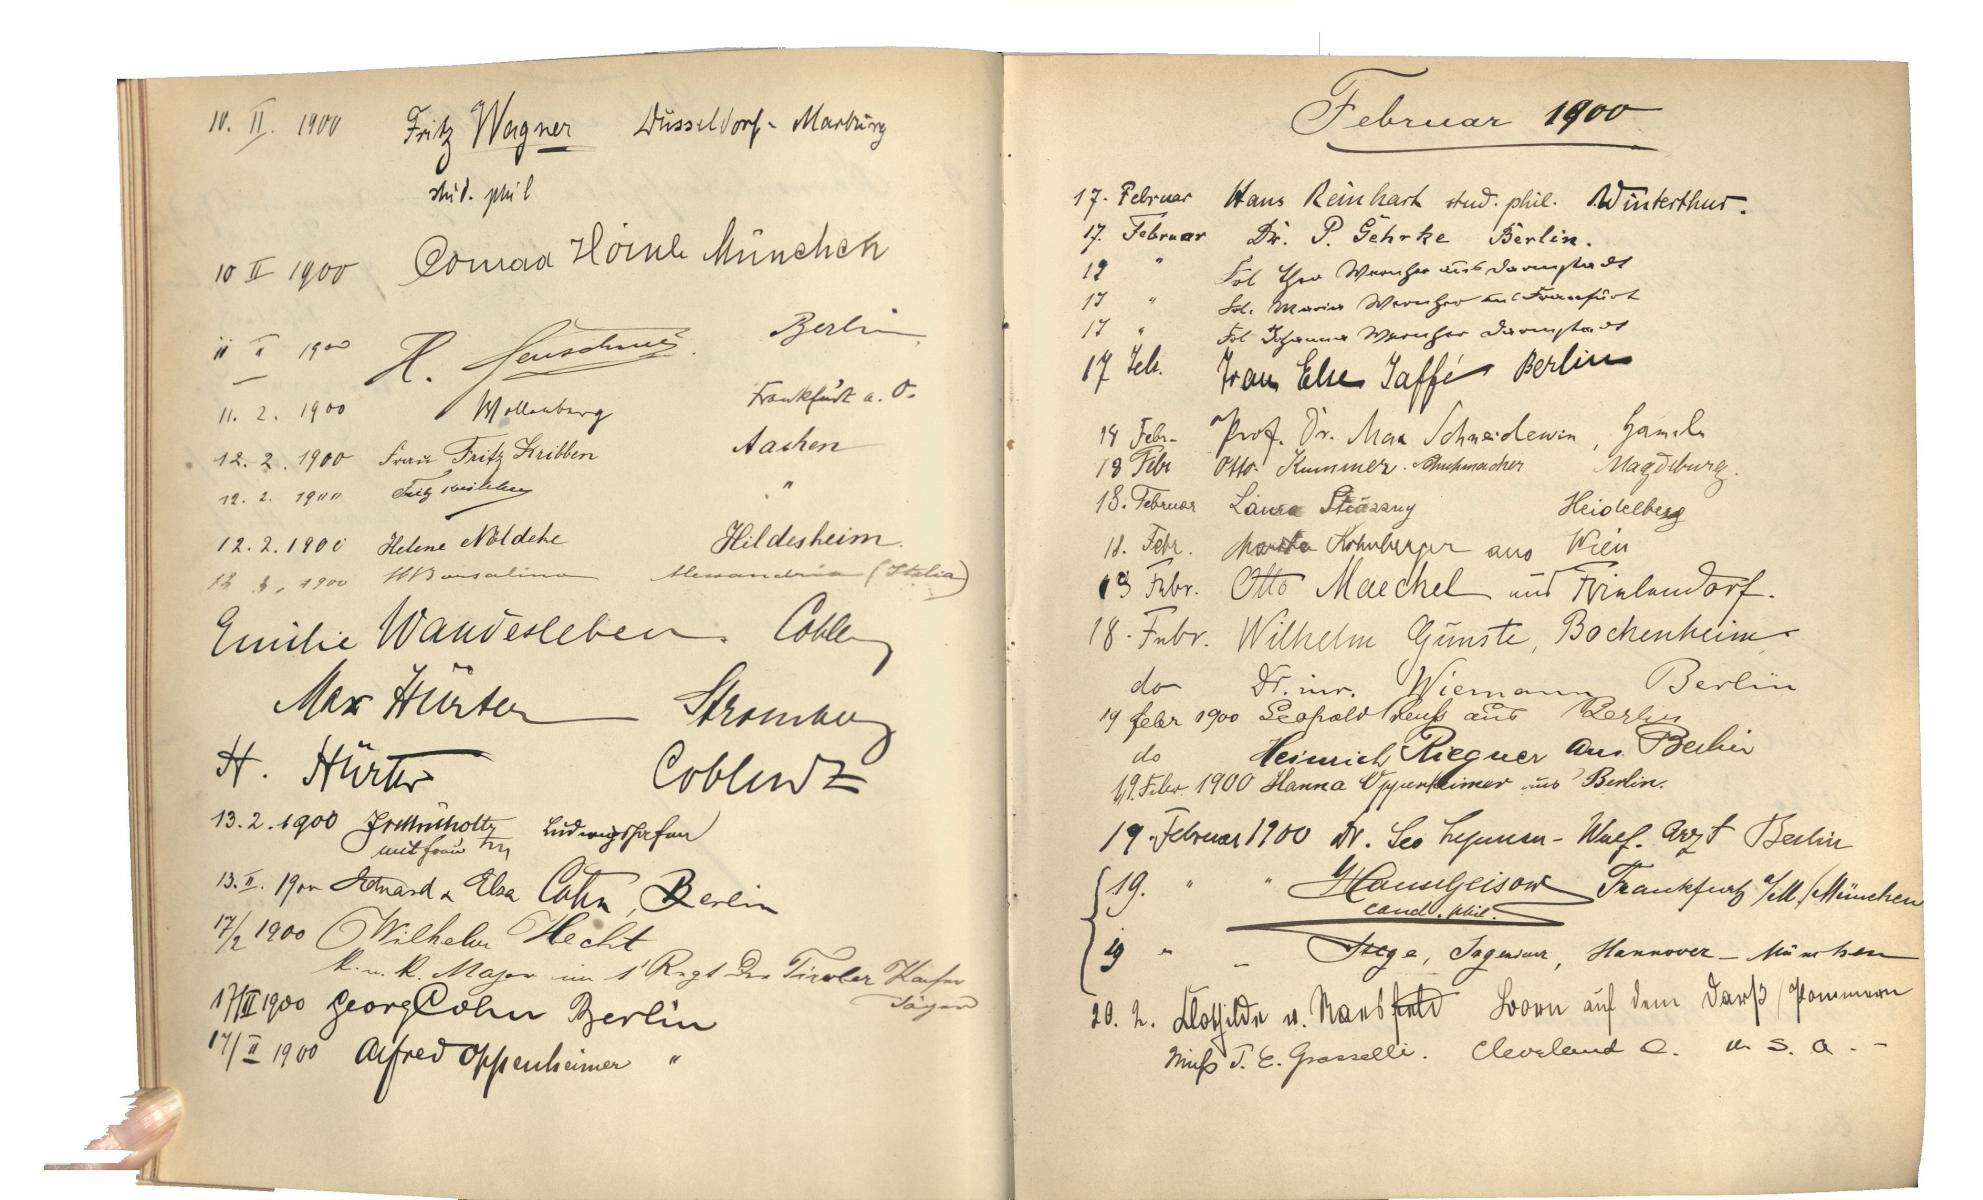 10. II. 1900 Fritz Wagner Düsseldorf - Marburg
stud. phil
10 II 1900 Conrad München
11 II 1900 H. Berlin
11. 2. 1900 Wollenberg Frankfurt a. O.
12. 2. 1900 Frau Fritz Kribben Aachen
12. 2. 1900 Fritz "
12. 2. 1900 Helene Nöldeke Hildesheim.
1900 Borsalino Alessandria (Italia)
Emilie Wandesleben. Coblenz
Max Hürter Stromberg
H. Hürter Coblenz
13. 2. 1900 Ludwigshafen
mit Frau
13. II. 1900 Eduard & Elsa Cohn, Berlin
17/2 1900 Wilhelm Hecht
K. u. K. Major im 1 Rgt der Tiroler Kaiser
Jäger
17/II 1900 Georg Cohn Berlin
17/II 1900 Alfred Oppenheimer "
Februar 1900
17. Februar Hans Reinhart stud. phil. Winterthur.
17. Februar Dr. P. Gehrke Berlin.
17 " Frl Wernher aus Darmstadt
17 " Frl. Maria Wernher aus Frankfurt
17 " Frl Johanna Wernher Darmstadt
17 Feb. Frau Else Jaffé Berlin
18 Febr. Prof. Dr. Max Schneidewin, Hameln
18 Febr Otto Kummer. Schuhmacher Magdeburg.
18. Februar Laura Heidelberg
18. Febr. Martha aus Wien
18 Febr. Otto Maeckel aus
18. Febr. Wilhelm Günste, Bockenheim
do Dr. iur. Wiemann Berlin
19 febr 1900 Leopold aus Berlin
do Heinrich Riegner aus Berlin
19. Febr 1900 Hanna Oppenheimer aus Berlin.
19. Februar 1900 Dr. Leo Arzt Berlin
19. " " Hans Geisow Frankfurt a/M./München
cand. phil.
19 " " Stege, Ingenieur, Hannover - München
20. 2. Clothilde v. Born auf dem Darß / Pommern
Miss T. E. Grasselli. Cleveland O. U. S. A. -